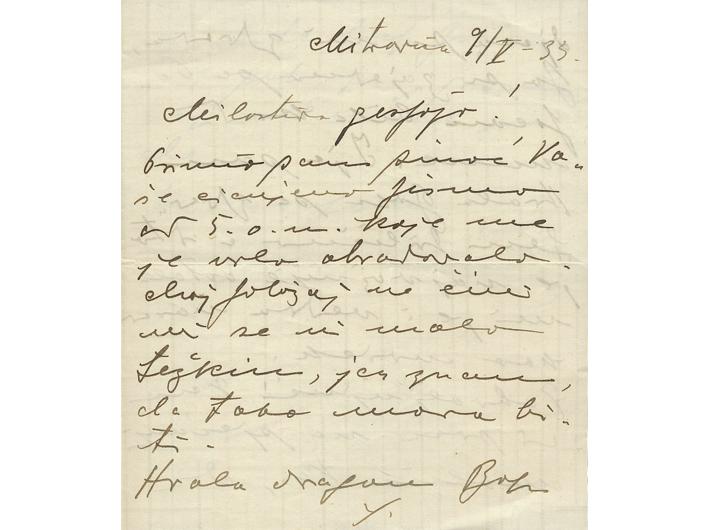 Mitrovica 9/V - 33.
Milostiva gospojo!
Primio sam sinoć Va-
še cijenjeno pismo
od 5. o. m. koje me
je vrlo obradovalo.
Moj položaj ne čini
mi se ni malo
težkim, jer znam,
da tako mora bi-
ti.
Hvala dragom Bogu